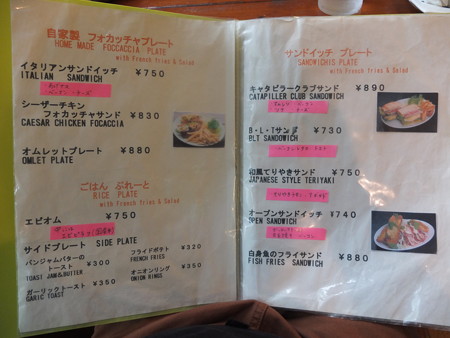 自家製 フォカッチャプレート
HOME MADE FOCCACCIA PLATE
with French fries & Salad
イタリアンサンドイッチ ¥750
ITALIAN SANDWICH
シーザーチキン
フォカッチャサンド ¥830
CAESAR CHICKEN FOCACCIA
オムレットプレート ¥880
OMLET PLATE
ごはん ぷれーと
RICE PLATE
with French fries & Salad
エビオム ¥750
サイドプレート SIDE PLATE
パンジャムバターの
トースト ¥300
TOAST JAM&BUTTER
ガーリックトースト ¥350
GARIC TOAST
フライドポテト ¥320
FRENCH FRIES
オニオンリング ¥350
ONION RINGS
サンドイッチ プレート
SANDWICHS PLATE
with French fries & Salad
キャタピラークラブサンド ¥890
CATAPILLER CLUB SANDWICH
B・L・Tサンド ¥730
BLT SANDOWICH
和風てりやきサンド ¥750
JAPANESE STYLE TERIYAKI
オープンサンドイッチ ¥740
OPEN SANDWICH
白身魚のフライサンド ¥880
FISH FRIES SANDWICH